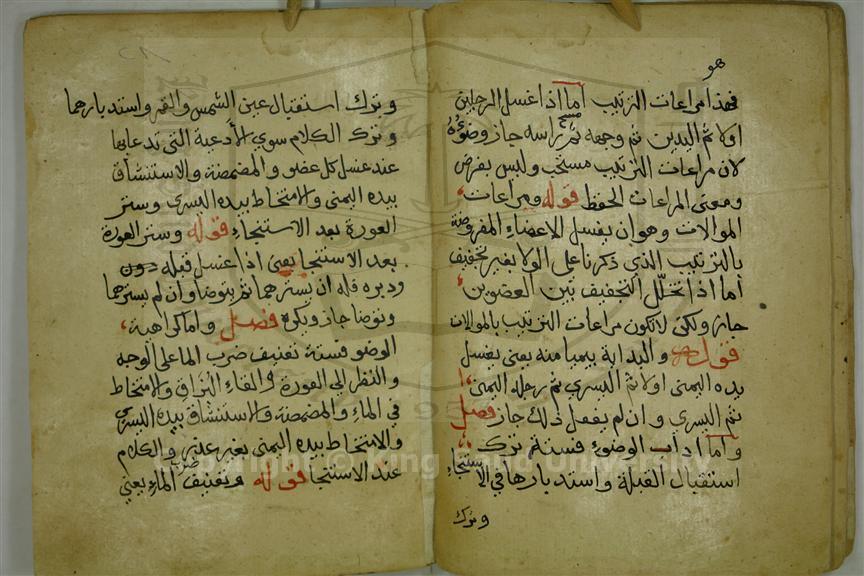 هو
فهذا مراعات الترتيب اما اذا غسل الرجلين
اولا ثم اليدين ثم وجهه ثم مسح راسه جاز وضوءه
لان مراعات الترتيب مستحب وليس بفرض
ومعنى المراعات الحفظ قوله ومراعات
الموالات وهو ان يغسل الاعضاء المفروضة
بالترتيب الذي ذكرنا على الولا بغير تخفيف
اما اذا تخلل التجفيف بين العضوين
جاز ولكن لا تكون مراعات الترتيب بالموالات
قوله والبداية بميامنه يعني يغسل
يده اليمنى اولا ثم اليسري ثم رجله اليمنى
ثم اليسري وان لم يفعل ذلك جاز فصل
واما اداب الوضوء فستة ترك
استقبال القبلة واستدبارها في الاستنجاء
وترك
وترك استقبال عين الشمس والقمر واستدبارهما
وترك الكلام سوي الأدعية التي تدعا بها
عند غسل كل عضو والمضمضة والاستنشاق
بيده اليمنى والامتخاط بيده اليسري وستر
العورة بعد الاستنجاء قوله وستر العورة
بعد الاستنجا يعني اذا غسل قبله
ودبره فله ان يسترهما ثم يتوضا وان لم يسترهما
وتوضا جاز ويكره فصل واما كراهية
الوضو فستة تعنيف ضرب الماء على الوجه
والنظر الي العورة والقاء البزاق والامتخاط
في الماء والمضمضة والاستنشاق بيده اليسري
والامتخاط بيده اليمنى بغير عذر والكلام
عند الاستنجا قوله وتعنيف ضرب الماء يعني